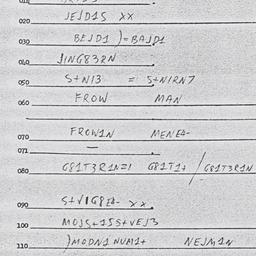 020 JEJD1S XX
030 BEJD1 )=BAJD1
040 JING83RN
050 S+NI3 = S+NIRN7
060 FROW MAN
070 FROW1N MENE4-
071 —
080 G81T3R1N=1 G81T1+ / G81T3R1N
090 S+VIG8E4- XX
100 MOJS+1SS+VEJ3
110 )MODN1NUM1+ NEJM1N